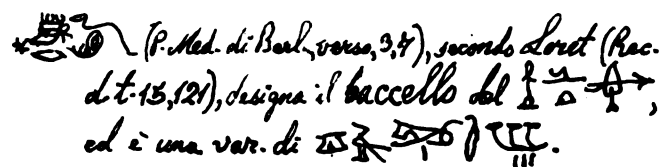 (P. Med. di Berl., verso, 3,7), secondo Loret (Rec.
d. t. 15, 121), designa il baccello del ,
ed è una var. di .